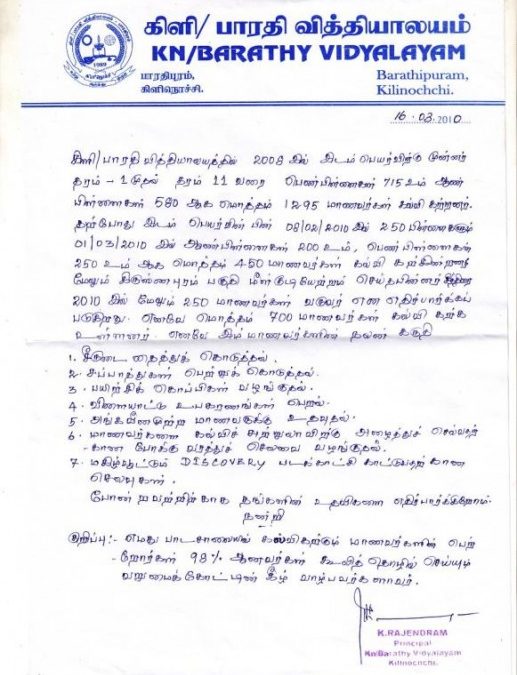 கிளி/ பாரதி வித்தியாலயம்
KN/BARATHY VIDYALAYAM
பாரதிபுரம், Barathipuram,
கிளிநொச்சி. Kilinochchi.
1989
16.03.2010
கிளி/பாரதி வித்தியாலயத்தில் 2008 இல் இடம் பெயர்விற்கு முன்னர்
தரம் - 1 முதல் தரம் 11 வரை பெண்பிள்ளைகள் 715 உம் ஆண்
பிள்ளைகள் 580 ஆக மொத்தம் 1295 மாணவர்கள் கல்வி கற்றனர்.
தற்போது இடம் பெயர்வின் பின் 08/02/2010 இல் 250 பிள்ளைகளும்
01/03/2010 இல் ஆண்பிள்ளைகள் 200 உம், பெண்பிள்ளைகள்
250 உம் ஆக மொத்தம் 450 மாணவர்கள் கல்வி கற்கின்றனர்
மேலும் கிருஸ்ணபுரம் பகுதி மீள்குடியேற்றம் செய்தபின்னர்
2010 இல் மேலும் 250 மாணவர்கள் வருவர் என எதிர்பார்க்கப்
படுகிறது. எனவே மொத்தம் 700 மாணவர்கள் கல்வி கற்க
உள்ளனர். எனவே இம் மாணவர்களின் நலன் கருதி
1. சீருடை தைத்துக் கொடுத்தல்.
2. சப்பாத்துகள் பெற்றுக் கொடுத்தல்.
3. பயிற்சிக் கொப்பிகள் வழங்குதல்.
4. விளையாட்டு உபகரணங்கள் பெறல்.
5. அங்கவீனமுற்ற மாணவருக்கு உதவுதல்.
6. மாணவர்களை கல்விச் சுற்றுலாவிற்கு அழைத்துச் செல்வதற்
- கான போக்கு வரத்துச் செலவை வழங்குதல்.
7. மகிழ்வூட்டும் DISCOVERY படக்காட்சி காட்டுவதற் கான
செலவுகள்.
போன்றவற்றிற்காக தங்களின் உதவிகளை எதிர்பார்க்கிறோம்.
நன்றி
குறிப்பு:- எமது பாடசாலையில் கல்விகற்கும் மாணவர்களின் பெற்
- றோர்கள் 98% ஆனவர்கள் கூலித் தொழில் செய்யும்
வறுமைக்கோட்டின் கீழ் வாழ்பவர்களாவர்.
K.RAJENDRAM
Principal
Kn/Barathy Vidyalayam
Kilinochchi.